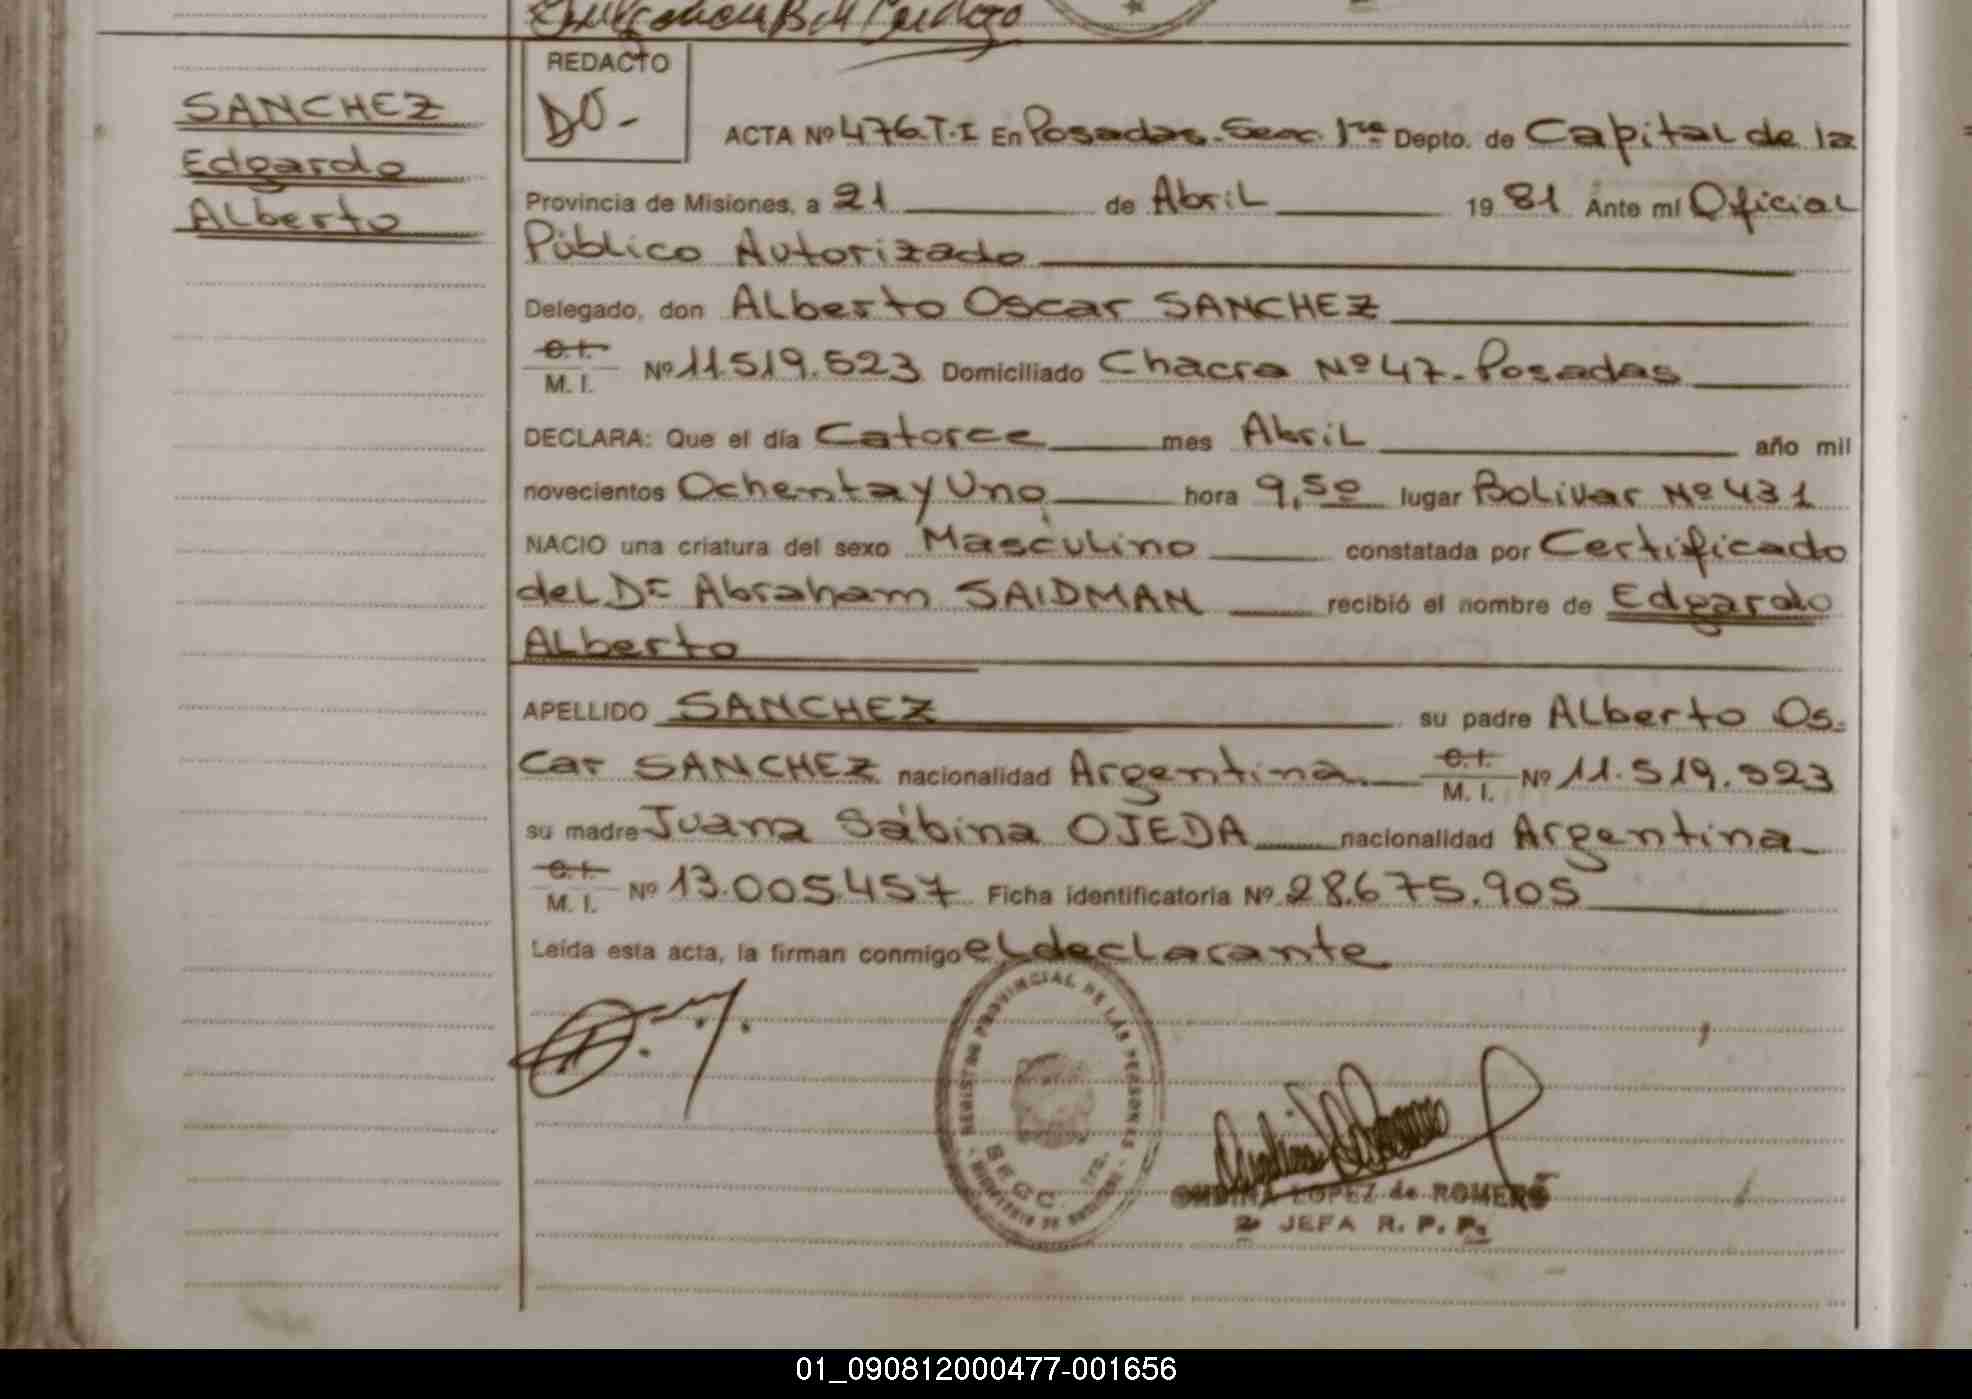 REDACTO
DO-
SANCHEZ
Edgardo
Alberto
ACTA Nº 476.T.I En Posadas. Secc. 1ra Depto. de Capital de la
Provincia de Misiones, a 21 de Abril 1981 Ante mí Oficial
Público Autorizado
Delegado, don Alberto Oscar SANCHEZ
C.I.
M. I. Nº 11.519.523 Domiciliado Chacra Nº 47- Posadas
DECLARA: Que el día Catorce mes Abril año mil
novecientos Ochenta y Uno hora 9,50 lugar Bolivar Nº 431
NACIO una criatura del sexo Masculino constatada por Certificado
del Dr Abraham SAIDMAN recibió el nombre de Edgardo
Alberto
APELLIDO SANCHEZ su padre Alberto Os-
car SANCHEZ nacionalidad Argentina C.I.
M. I. Nº 11.519.523
su madre Juana Sabina OJEDA nacionalidad Argentina
C.I.
M. I. Nº 13.005.457 Ficha identificatoria Nº 28.675.905
Leída esta acta, la firman conmigo el declarante
REGISTRO PROVINCIAL DE LAS PERSONAS
ONDINA LOPEZ de ROMERO
2º JEFA R. P. P.
01_090812000477-001656